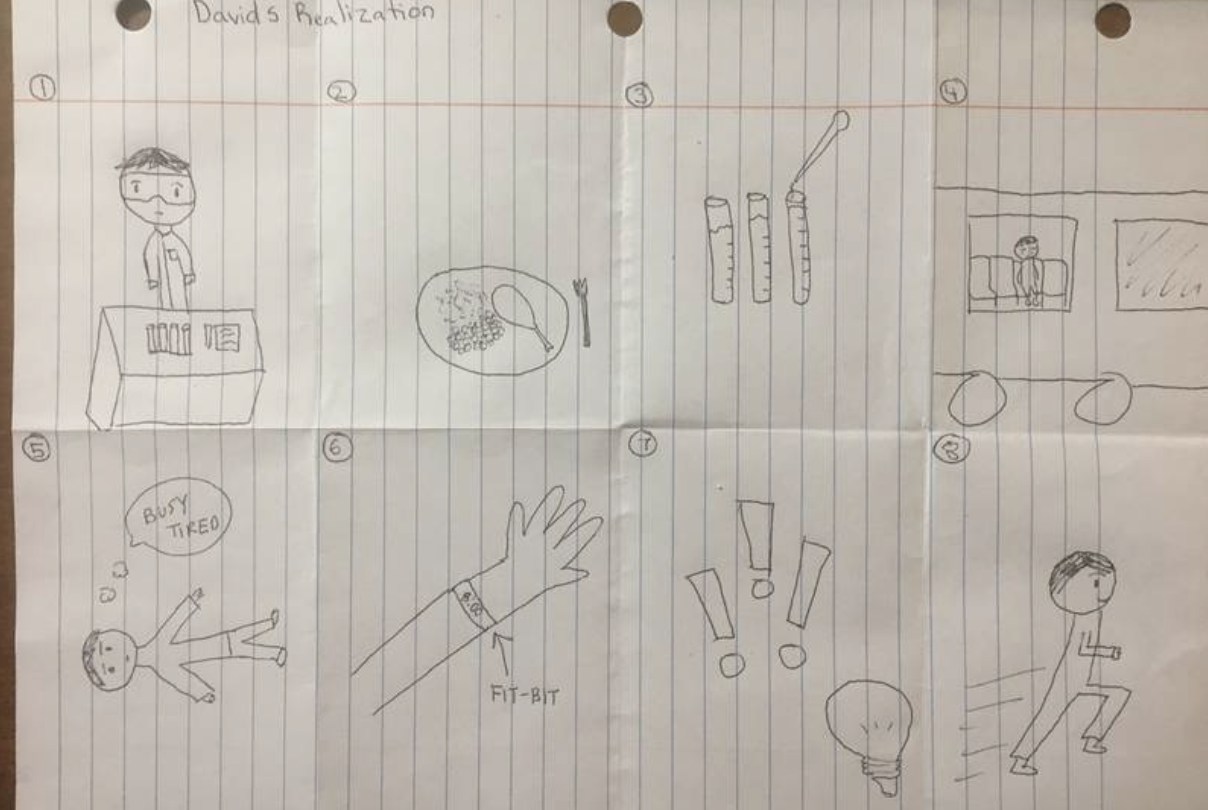 Davids Realization
1
2
3
4
5
BUSY
TIRED
6
FIT-BIT
7
8